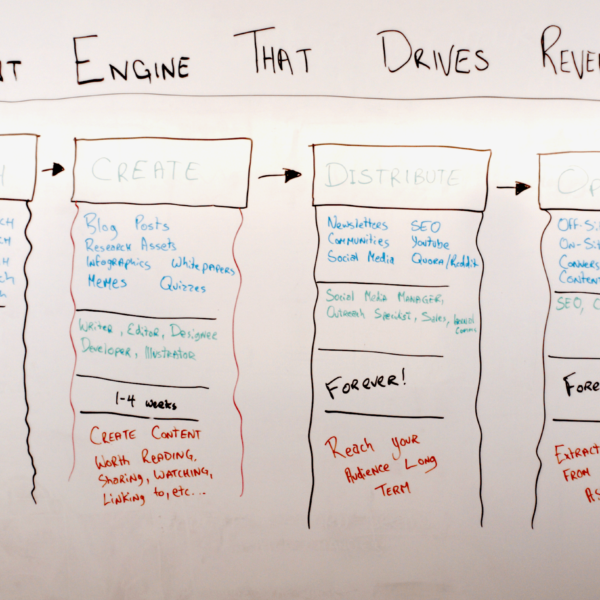 NT ENGINE THAT DRIVES REVE
H
CREATE
Blog Posts
Research Assets
Infographics Whitepapers
Memes Quizzes
Writer, Editor, Designer
Developer, Illustrator
1-4 weeks
CREATE CONTENT
WORTH READING,
Sharing, WATCHING,
Linking to, etc...
DISTRIBUTE
Newsletters SEO
Communities Youtube
Social Media Quora/Reddit
Social Media MANAGER,
Outreach Specialist, Sales,
Comms
FOREVER!
Reach your
Audience Long
TERM
OP
OFF-Sit
ON-Sit
Convers
Content
SEO, C
FORE
Extract
FROM
AS